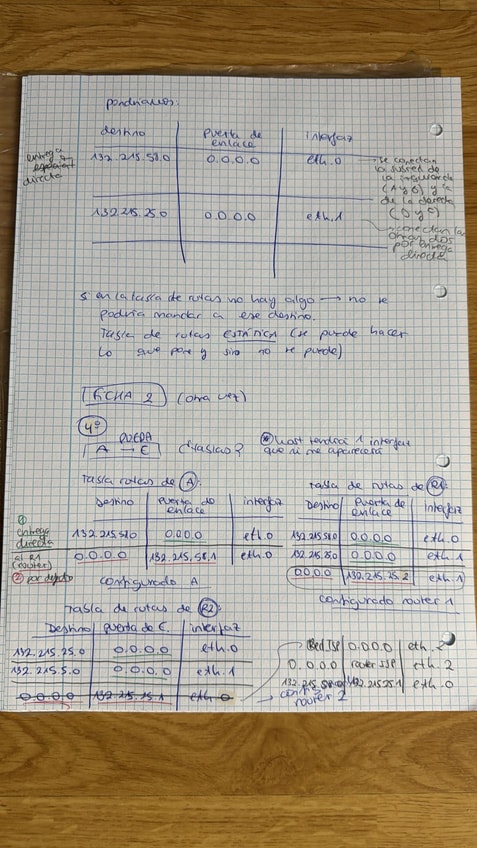 pondríamos:
destino | puerta de enlace | interfaz
entrega directa
132.215.58.0 | 0.0.0.0 | eth.0
→ se conectan la subred de la izquierda (A y B) y la de la derecha (D y C)
132.215.25.0 | 0.0.0.0 | eth.1
→ conectan las otras dos por entrega directa
Si en la tabla de rutas no hay algo → no se
podría mandar a ese destino.
Tabla de rutas ESTÁTICA (se puede hacer
lo que pone y sino no se puede)
FICHA 2 (otra vez)
4º
PUEDA
A → E ¿tablas?
* host tendrá 1 interfaz
que ni me aparecerá
Tabla rutas de A:
Destino | Puerta de enlace | interfaz
① entrega directa
132.215.58.0 | 0.0.0.0 | eth.0
al R1 (router)
② por defecto
0.0.0.0 | 132.215.58.1 | eth.0
configurado A
Tabla de rutas de R1:
Destino | Puerta de enlace | Interfaz
132.215.58.0 | 0.0.0.0 | eth.0
132.215.25.0 | 0.0.0.0 | eth.1
0.0.0.0 | 132.215.25.2 | eth.1
configurado router 1
Tabla de rutas de R2:
Destino | puerta de E. | interfaz
132.215.25.0 | 0.0.0.0 | eth.0
132.215.5.0 | 0.0.0.0 | eth.1
0.0.0.0 | 132.215.25.1 | eth.0
Red ISP | 0.0.0.0 | eth.2
0.0.0.0 | router ISP | eth.2
132.215.58.0 | 132.215.25.1 | eth.0
→ config. router 2